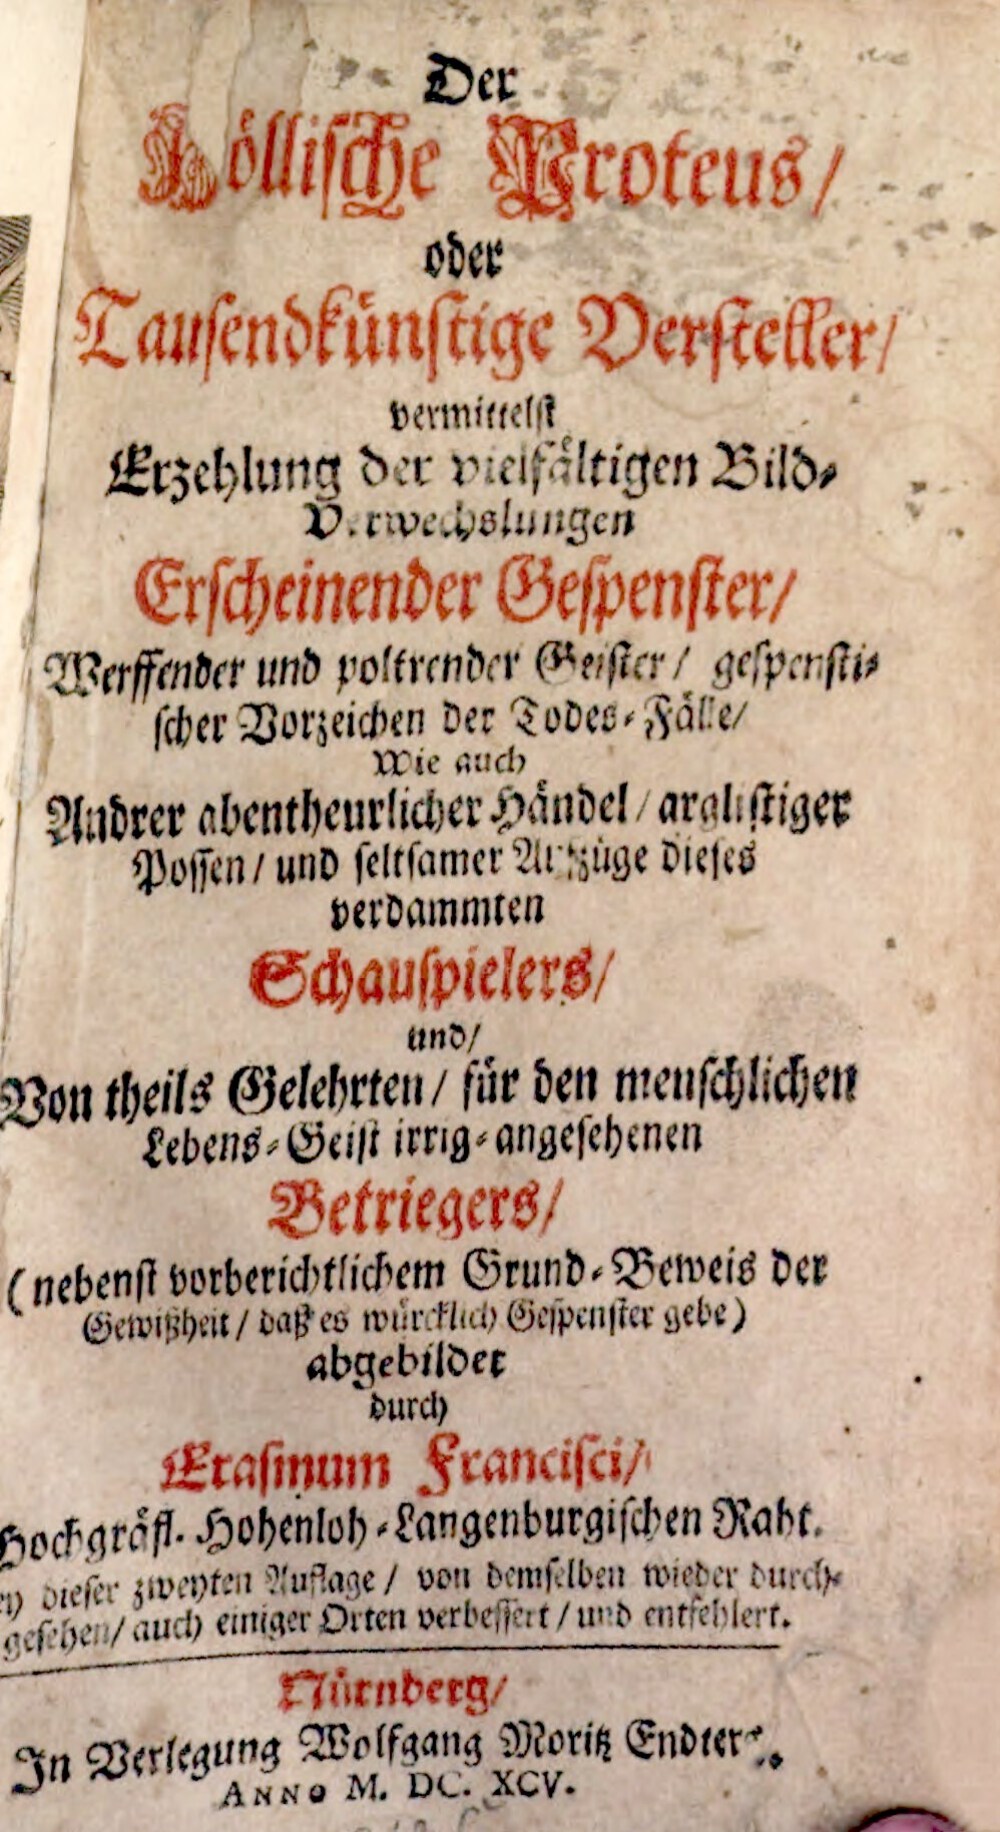 Der
Höllische Proteus/
oder
Tausendkünstige Versteller/
vermittelst
Erzehlung der vielfältigen Bild-
Verwechslungen
Erscheinender Gespenster/
Werffender und poltrender Geister/ gespensti-
scher Vorzeichen der Todes-Fälle/
Wie auch
Andrer abentheurlicher Händel/ arglistiger
Possen/ und seltsamer Aufzüge dieses
verdammten
Schauspielers/
und/
Von theils Gelehrten/ für den menschlichen
Lebens-Geist irrig-angesehenen
Betriegers/
(nebenst vorberichtlichem Grund-Beweis der
Gewißheit/ daß es würcklich Gespenster gebe)
abgebildet
durch
Erasmum Francisci/
Hochgräfl. Hohenloh-Langenburgischen Raht.
dieser zweyten Auflage/ von demselben wieder durch-
gesehen/ auch einiger Orten verbessert/ und entfehlert.
Nürnberg/
In Verlegung Wolfgang Moritz Endter.
ANNO M. DC. XCV.